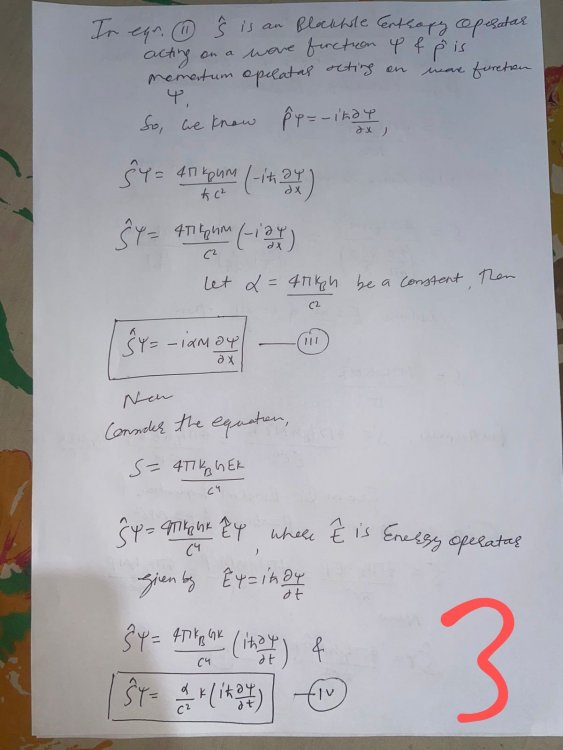 In eqn. (ii) Ŝ is an Blackhole Entropy operator
acting on a wave function Ψ & p̂ is
momentum operator acting on wave function
Ψ,
So, we know p̂Ψ = -iħ ∂Ψ/∂x,
ŜΨ = 4πk_BGM/ħc² (-iħ ∂Ψ/∂x)
ŜΨ = 4πk_BGM/c² (-i ∂Ψ/∂x)
Let α = 4πk_BG/c² be a constant, then
ŜΨ = -iαM ∂Ψ/∂x — (iii)
Now
Consider the equation,
S = 4πk_BGEk/c⁴
ŜΨ = 4πk_BGk/c⁴ ÊΨ, where Ê is Energy operator
given by ÊΨ = iħ ∂Ψ/∂t
ŜΨ = 4πk_BGk/c⁴ (iħ ∂Ψ/∂t) &
ŜΨ = α/c² k (iħ ∂Ψ/∂t) — (iv)
3